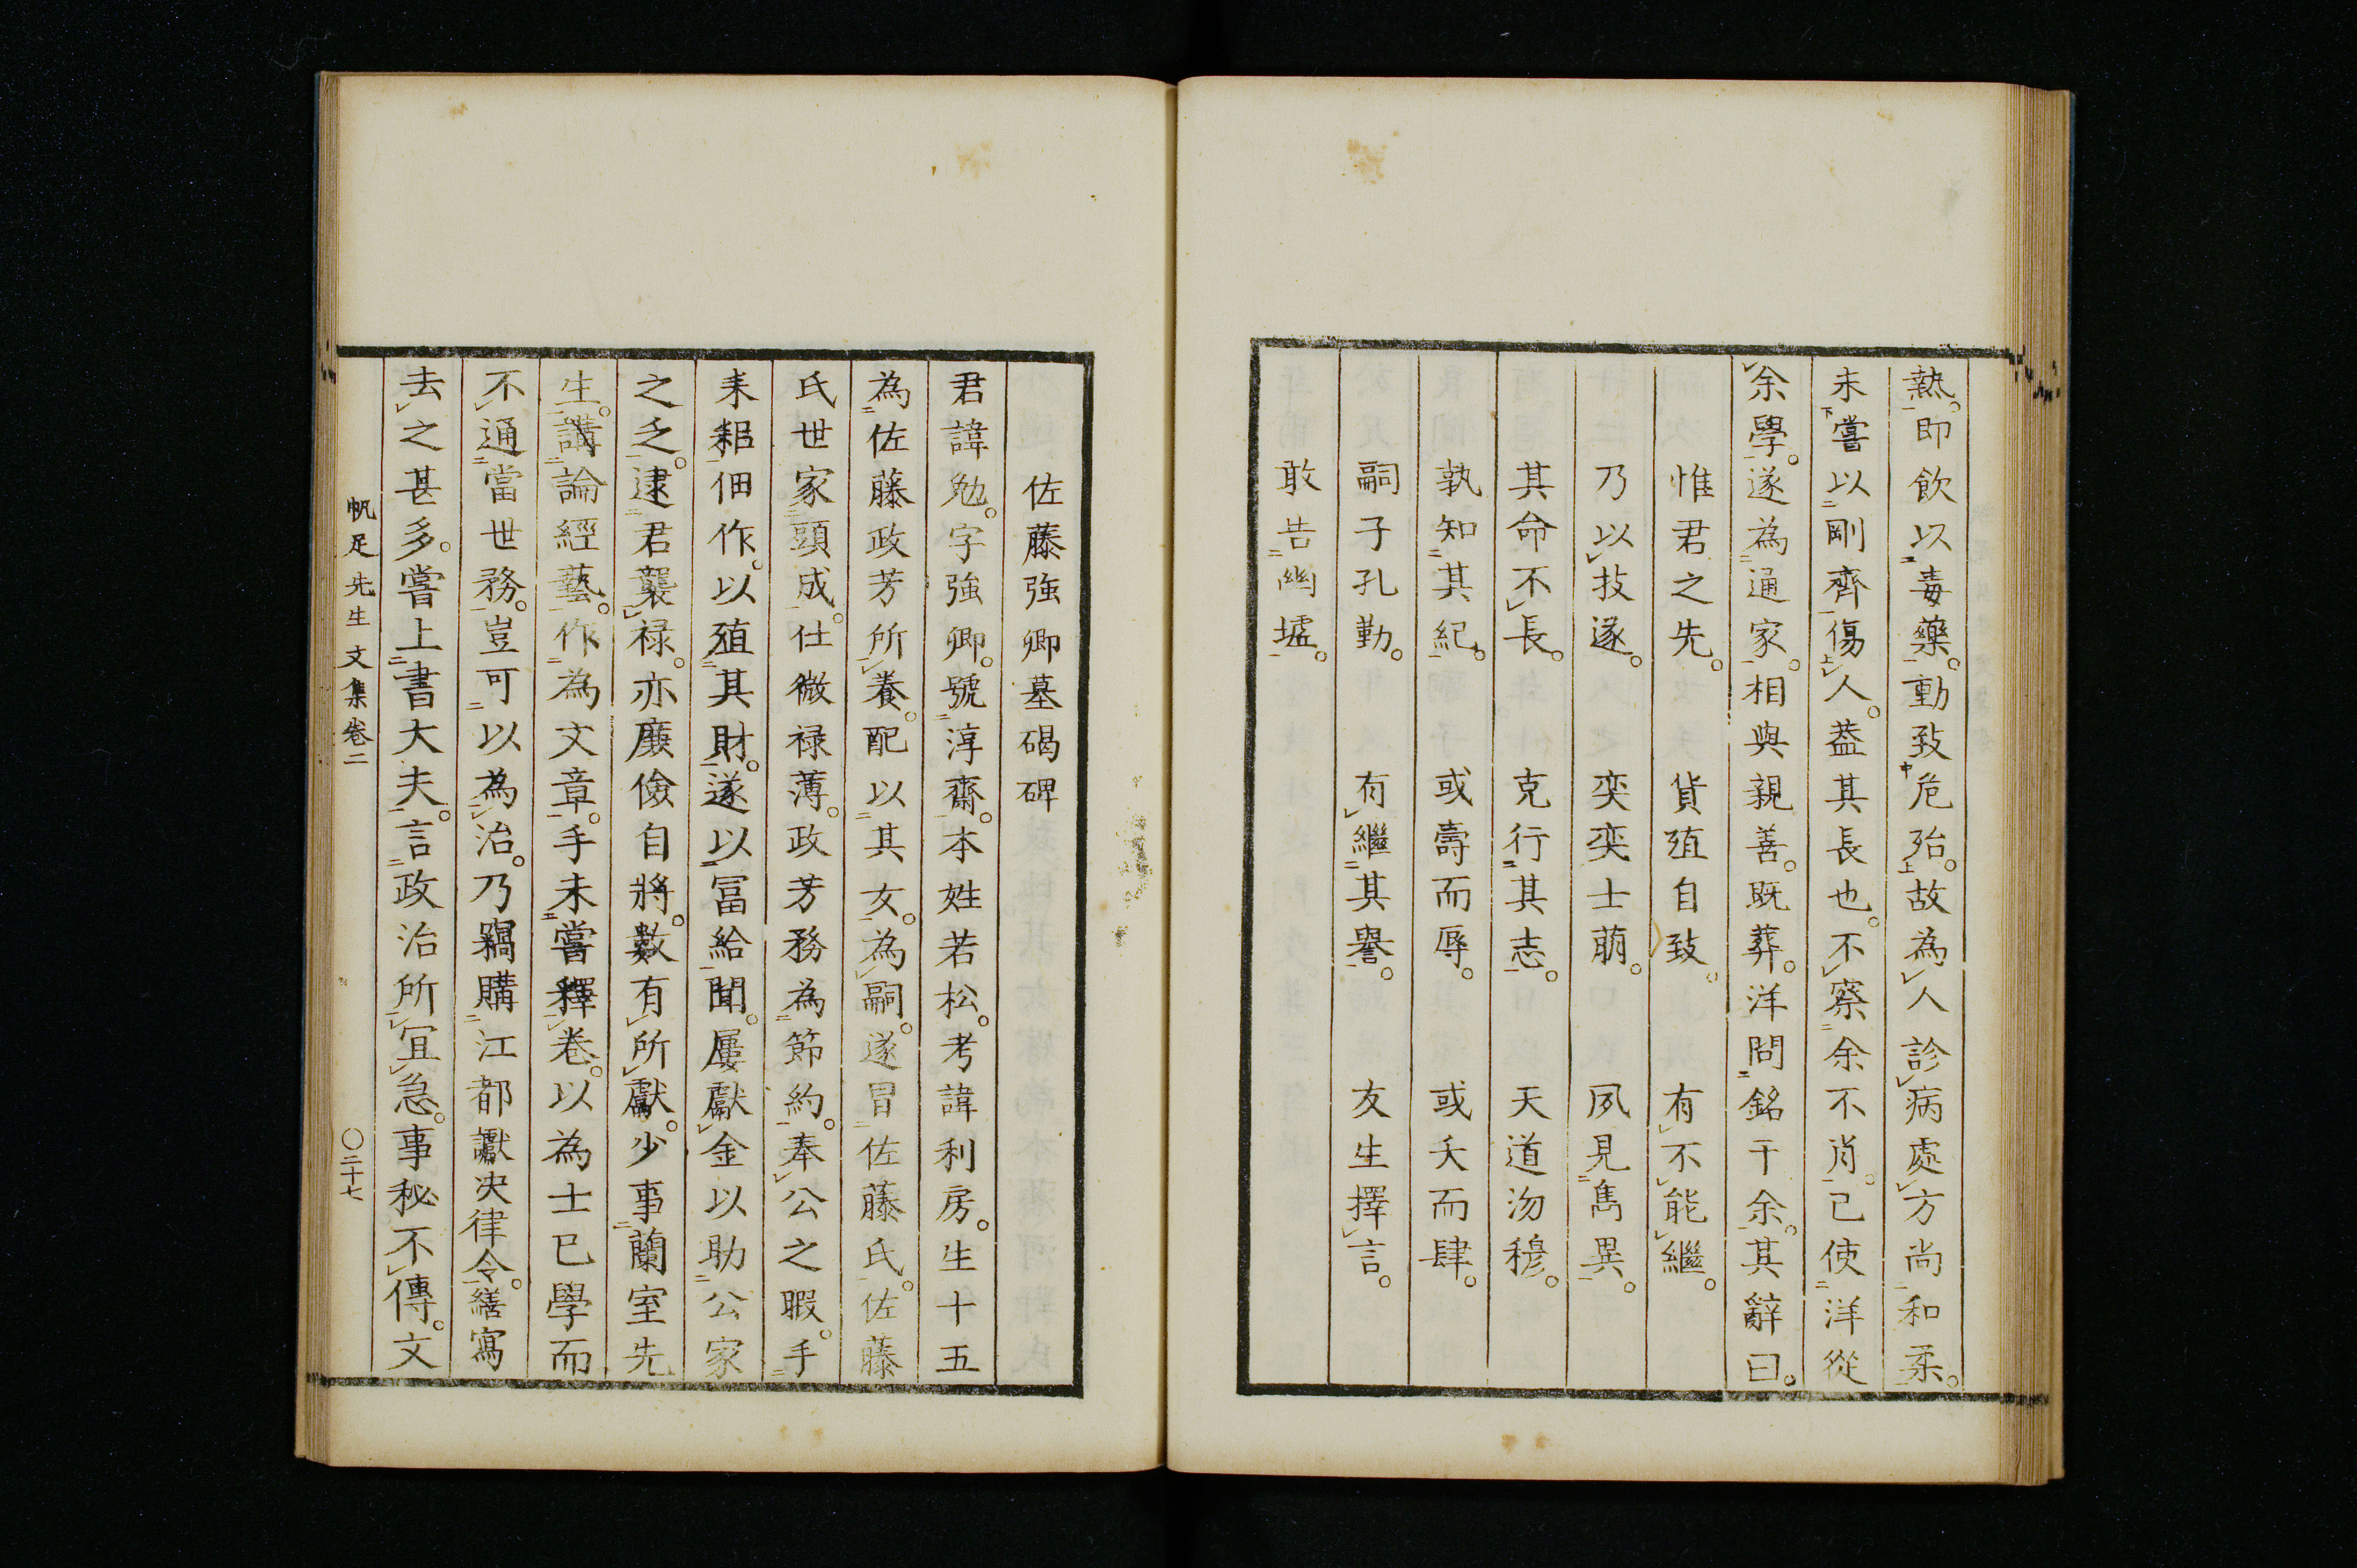 熱。即飲以毒藥。動致危殆。故為人診病處方尚和柔。
未嘗以剛齊傷人。蓋其長也。不察余不肖。已使洋從
余學。遂為通家。相與親善。既葬。洋問銘于余。其辭曰。
惟君之先。 貨殖自致。 有不能繼。
乃以技遂。 奕奕士萠。 夙見雋異。
其命不長。 克行其志。 天道沕穆。
孰知其紀。 或壽而辱。 或夭而肆。
嗣子孔勤。 有繼其譽。 友生擇言。
敢告幽墟。
佐藤強卿墓碣碑
君諱勉。字強卿。號淳齋。本姓若松。考諱利房。生十五
為佐藤政芳所養。配以其女。為嗣。遂冒佐藤氏。佐藤
氏世家頭成。仕微祿薄。政芳務為節約。奉公之暇。手
耒耜佃作。以殖其財。遂以冨給聞。屢獻金以助公家
之乏。逮君襲祿。亦廉儉自將。數有所獻。少事蘭室先
生。講論經藝。作為文章。手未嘗釋卷。以為士已學而
不通當世務。豈可以為治。乃竊購江都讞決律令。繕寫
去之甚多。嘗上書大夫。言政治所宜急。事秘不傳。文
帆足先生文集卷二 〇二十七